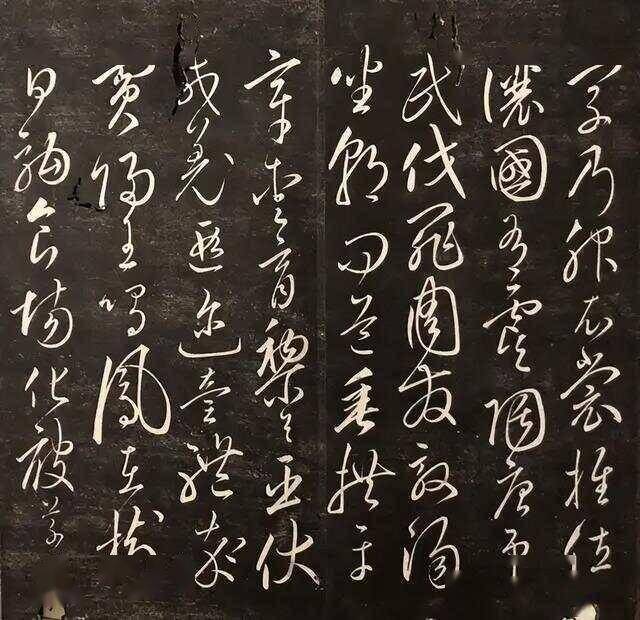 字乃服衣裳推位
讓國有虞陶唐弔
民伐罪周發殷湯
坐朝問道垂拱平
章愛育黎首臣伏
戎羌遐邇壹體率
賓歸王鳴鳳在樹
白駒食場化被草